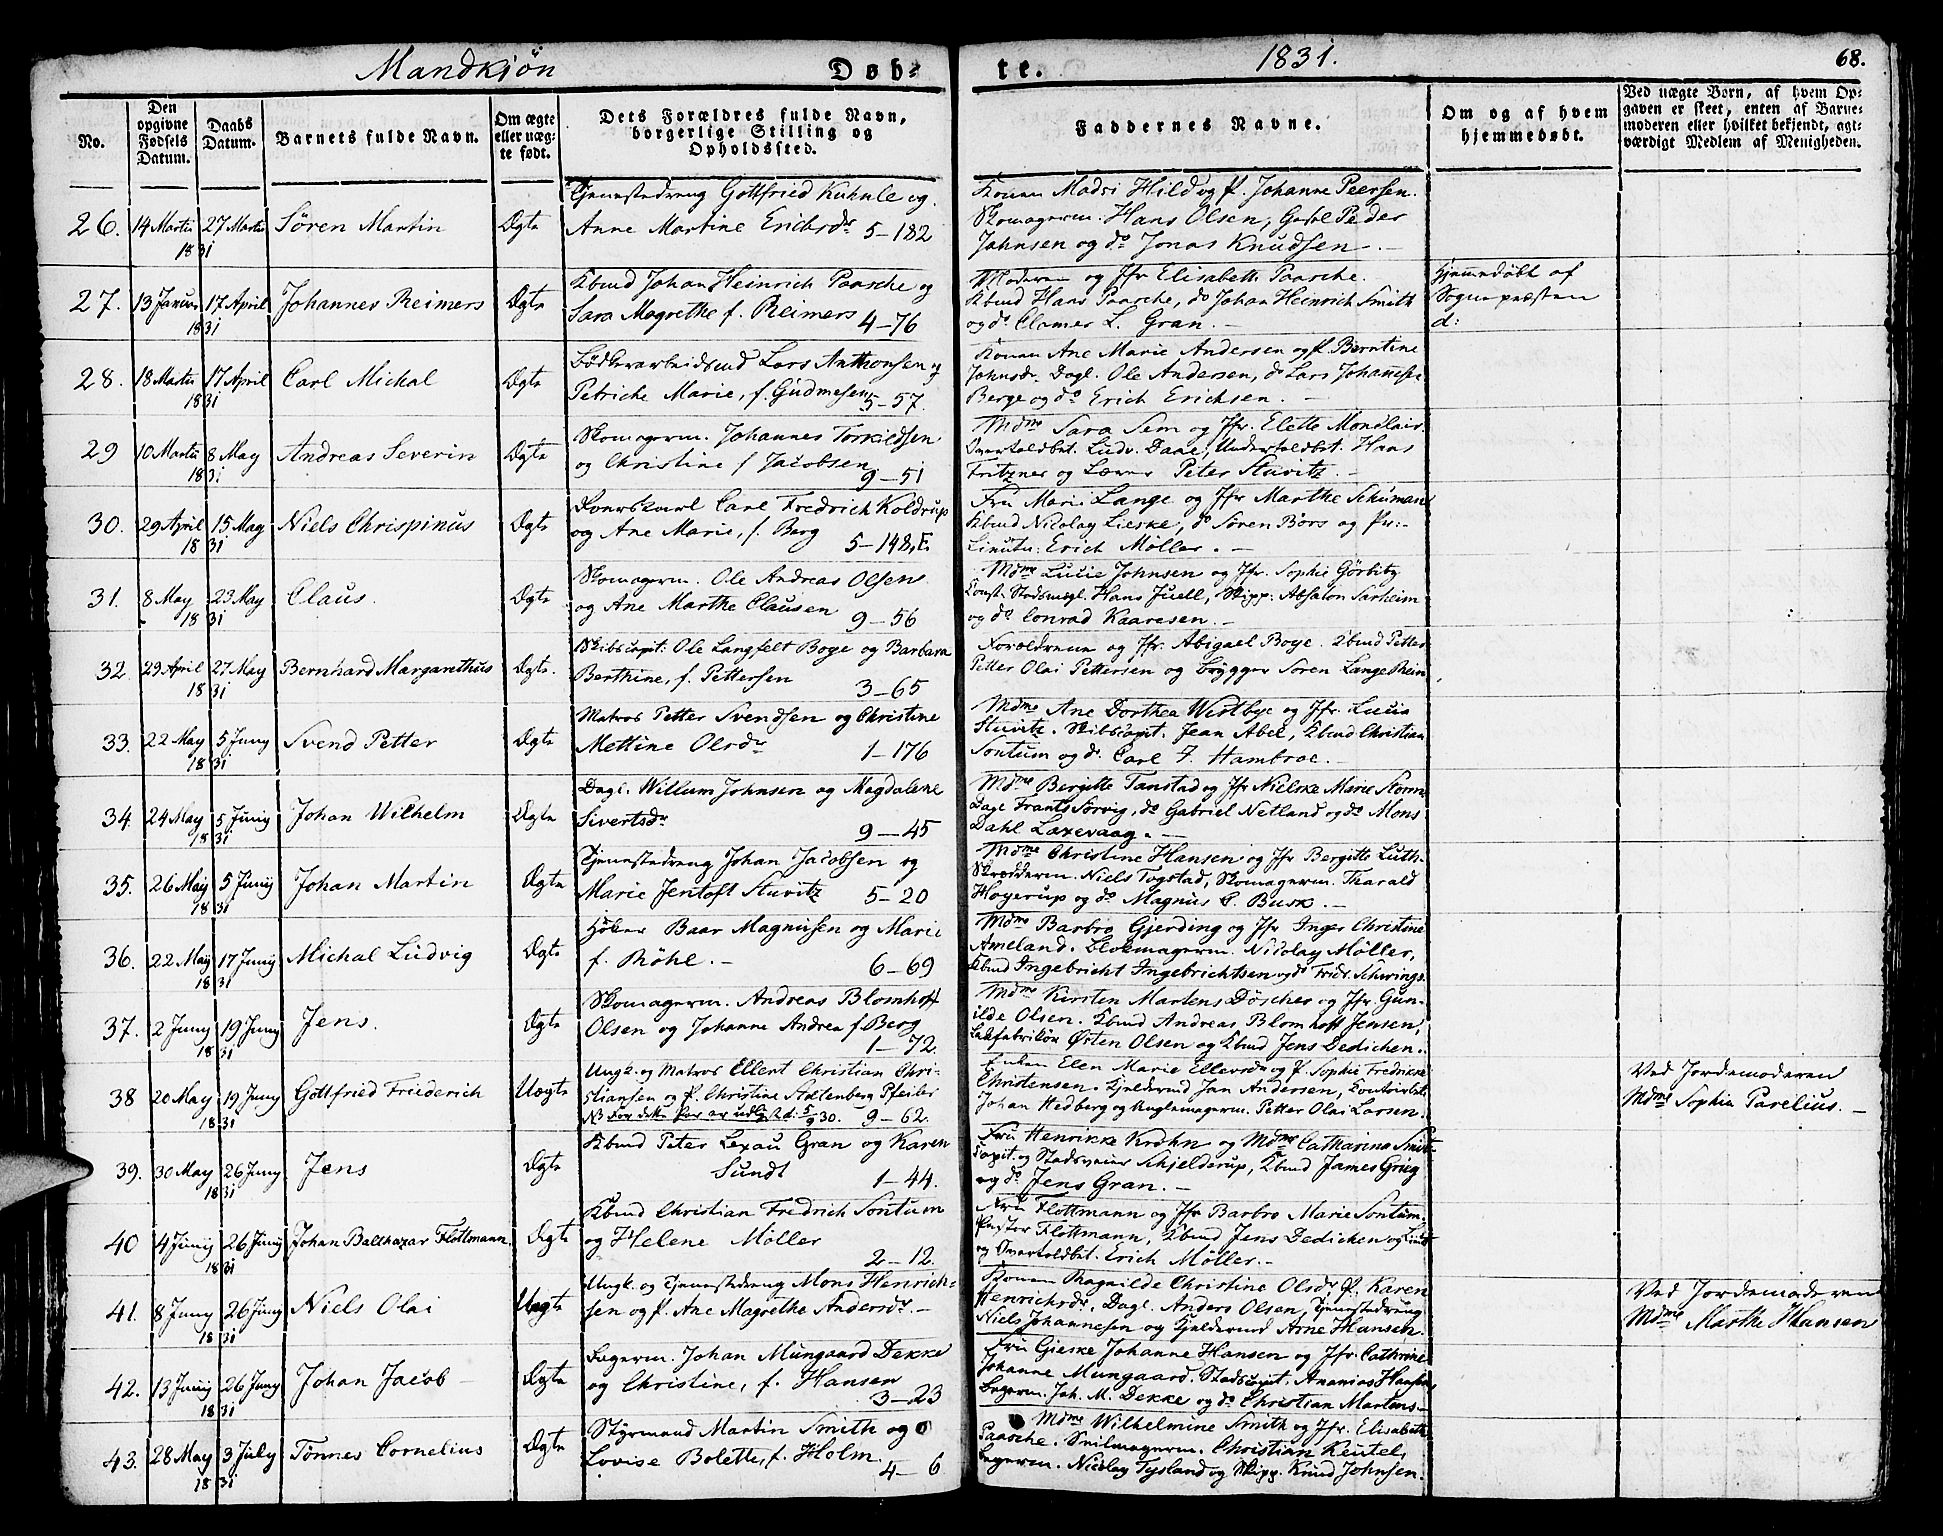 Mandkjön Døb- te. 1831. 68.
No.
Den opgivne Fødsels Datum.
Daabs Datum.
Barnets fulde Navn.
Om ægte eller uægte født.
Dets Forældres fulde Navn, borgerlige Stilling og Opholdssted.
Faddernes Navne.
Om og af hvem hjemmedøbt.
Ved uægte Børn, af hvem Opgaven er skeet, enten af Barnemoderen eller hvilket bekjendt, agtværdigt Medlem af Menigheden.
26. 14 Marts 27 Marts 1831 Sören Martin Ægte
Tjenestedreng Gottfried Kuhnle og
Anne Martine Ericksdr 5-182
Konen Madsi Hild og P. Johanne Peersen.
Skomagerm. Hans Olsen, Peder
Johnsen og do Jonas Knudsen.
27. 13 Januar 17 April 1831 Johannes Reimers Ægte
Kbmd Johan Heinrich Paasche og
Sara Magrethe f. Reimers 4-76
Moderen og Jfr Elisabeth Paasche.
Kbmd Hans Paasche, do Johan Heinrich Smitt
og do Clamer L. Gran.
Hjemmedöbt af
Sognepræsten
d:
28. 18 Marts 17 April 1831 Carl Michal Ægte
Bödkerarbeidsmd Lars Anthonsen og
Petriche Marie, f. Gudmesen 5-57.
Konen Ane Marie Andersen og P. Berntine
Johnsdr. Dagl. Ole Andersen, do Lars Johannesen
Berge og do Erich Erichsen.
29 10 Marts 8 May 1831 Andreas Severin Ægte
Skomagerm. Johannes Torkildsen
og Christine f Jacobsen. 9-51
Mdme Sara Sem og Jfr. Elette Mondlair
Overtoldbet. Ludv. Daae, Undertoldbet. Hans
Fritzner og Lærer Peter Stuvitz.
30. 29 April 15 May 1831 Niels Chrispinus Ægte
Carl Fredrich Koldrup
og Ane Marie, f. Berg 5-148, E.
Fru Marie Lange og Jfr Marthe Schuman
Kbmd Nicolay Lieske, do Sören Börs og Pr:
Lieutn: Erich Möller.
31. 8 May 23 May 1831 Claus. Ægte
Skomagerm. Ole Andreas Olsen
og Ane Marthe Clausen 9-56
Mdme Lucie Johnsen og Jfr. Sophie Görbitz
Const. Stadsmægl. Hans Juell, Skipp: Absalon Sarheim
og do Conrad Kaaresen.
32. 29 April 27 May 1831 Bernhard Margarethus Ægte.
Skibscapit: Ole Langfelt Boye og Barbara
Berthine, f. Pettersen 3-65
Forældrene og Jfr. Abigael Boye. Kbmd Petter
Petter Olai Pettersen og Brygger Sören Lange Rein
33. 22 May 5 Juny 1831 Svend Petter Ægte
Matros Petter Svendsen og Christine
Mettine Olsdr 1-176
Mdme Ane Dorthea Westbye og Jfr. Lucia
Stuvitz. Skibscapit. Jean Abel, Kbmd Christian
Sontum og do Carl F. Hambroe.
34. 24 May 5 Juny 1831 Johan Wilhelm Ægte
Dagl. Willum Johnsen og Magdalene
Sivertsdr 9-45
Mdme Bergitte Tanstad og Jfr Nielske Marie Storm
Dagl Frants Sörvig, do Gabriel Netland og do Mons
Dahl Laxevaag.
35. 26 May 5 Juny 1831 Johan Martin Ægte
Tjenestedreng Johan Jacobsen og
Marie Jentoft Stuvitz 5-20
Mdme Christine Hansen og Jfr Bergitte Luth.
Skrædderm. Niels Togstad, Skomagerm. Tharald
Hoyerup og do Magnus C. Busk.
36. 22 May 17 Juny 1831 Michal Ludvig Ægte
Höker Baar Magnusen og Marie
f. Röhl. 6-69
Mdme Barbro Gjerding og Jfr Inger Christine
Ameland. Blokmagerm. Nicolay Möller,
Kbmd Ingebricht Ingebrichtsen og do Fridr. Schwings.
37. 2 Juny 19 Juny 1831 Jens. Ægte
Skomagerm. Andreas Blomhoff
Olsen og Johanne Andrea f. Berg
1-72.
Mdme Kirsten Martens Döscher og Jfr. Gun-
ilde Olsen. Kbmd Andreas Blomhoff Jensen,
Lakfabrikör Østen Olsen og Kbmd Jens Dedichen.
38 20 May 19 Juny 1831 Gottfried Friederich Uægte
Ungk. og Matros Ellert Christian Chri-
stiansen og P. Christine Stoltenberg Pfeifer
NB For dette Par er udlyst d: 5/9 30. 9-62.
Enken Elen Marie Ellersdr og P. Sophie Fredrikke
Christensen. Kjeldermd Jan Andersen,
Johan Hedberg og Nuglemagerm. Petter Olai Larsen.
Ved Jordemoderen
Mdme Sophia Parelius.
39. 30 May 26 Juny 1831 Jens Ægte
Kbmd Peter Lexau Gran og Karen
Sundt 1-44.
Fru Henrikke Krohn og Mdme Catharina Smit-
Capit. og Stadsveier Schjelderup, Kbmd James Grieg
og do Jens Gran.
40 4 Juny 26 Juny 1831 Johan Balthazar Flottmann. Ægte
Kbmd Christian Fredrich Sontum
og Helene Möller 2-12.
Fru Flottmann og Jfr Barbro Marie Sontum.
Pastor Flottmann, Kbmd Jens Dedichen og Lieut
og Overtoldbet. Erich Möller.
41. 8 Juny 26 Juny 1831 Niels Olai Uægte
Ungk. og Tjenestedreng Mons Henrich-
sen og P. Ane Magrethe Andersdr.
Konen Ragnilde Christine Olsdr P. Karen
Henrichsdr. Dagl. Anders Olsen, Tjenestedreng
Niels Johannesen og Kjeldermd Arne Hansen.
Ved Jordemoderen
Mdme Marthe Hansen
42. 13 Juny 26 Juny 1831 Johan Jacob Ægte
Bagerm. Johan Mungaard Dekke
og Christine, f. Hansen
3-23
Fru Gieske Johanne Hansen og Jfr. Cathrine
Johanne Mungaard. Stadscapit. Ananias Hansen,
Bagerm. Joh. M. Dekke og do Christian Martens
43. 28 May 3 July 1831 Tönnes Cornelius Ægte
Styrmand Martin Smith og
Lovise Bolette, f. Holm. 4-6
Mdme Wilhelmine Smith og Jfr. Elisabeth
Paasche. Seilmagerm. Christian Keutel,
Bagerm. Nicolay Tysland og Skipp. Knud Johnsen.